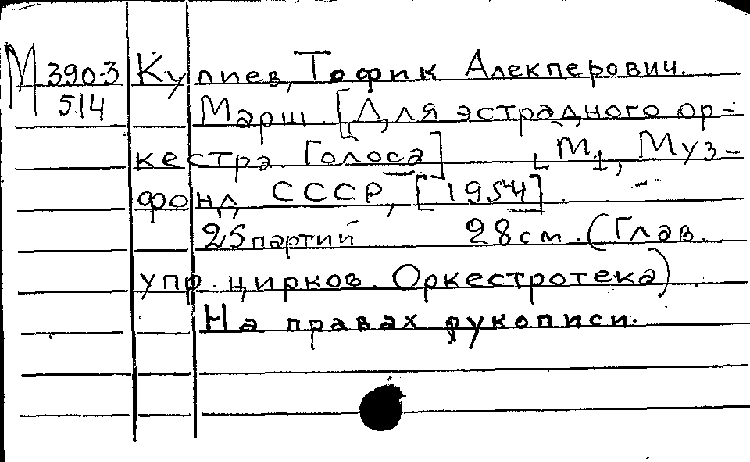 М 390-3 Кулиев, Тофик Алекперович.
514 Марш. [Для эстрадного ор-
кестра. Голоса] [М], Муз-
фонд СССР, [1954].
25 партий 28 см. (Глав.
упр. цирков. Оркестротека)
На правах рукописи.